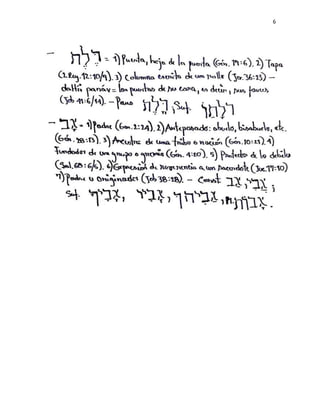 6
— דֶּלֶת = 1) Puerta, hoja de la puerta (Gén. 19:6). 2) Tapa
(2. Rey. 12:10/9). 3) Columna escrita de un rollo (Jer. 36:23) —
daltéi panáv = las puertas de su cara, es decir, sus fauces
(Job 41:6/14). — Paus דָּלֶת, Suf. דַּלְתְּךָ
— אָב = 1) Padre (Gén. 2:24). 2) Antepasado: abuelo, bisabuelo, etc.
(Gén. 28:13). 3) Ancestro de una tribu o nación (Gén. 10:21) 4)
Fundador de un grupo o gremio (Gén. 4:20). 5) Protector de lo débiles
(Sal. 68:6/5). 6) Expresión de reverencia a un sacerdote (Jue. 17:10)
7) Padre u Originador (Job 38:28). — Const. אַב, אֲבִי;
Suf.